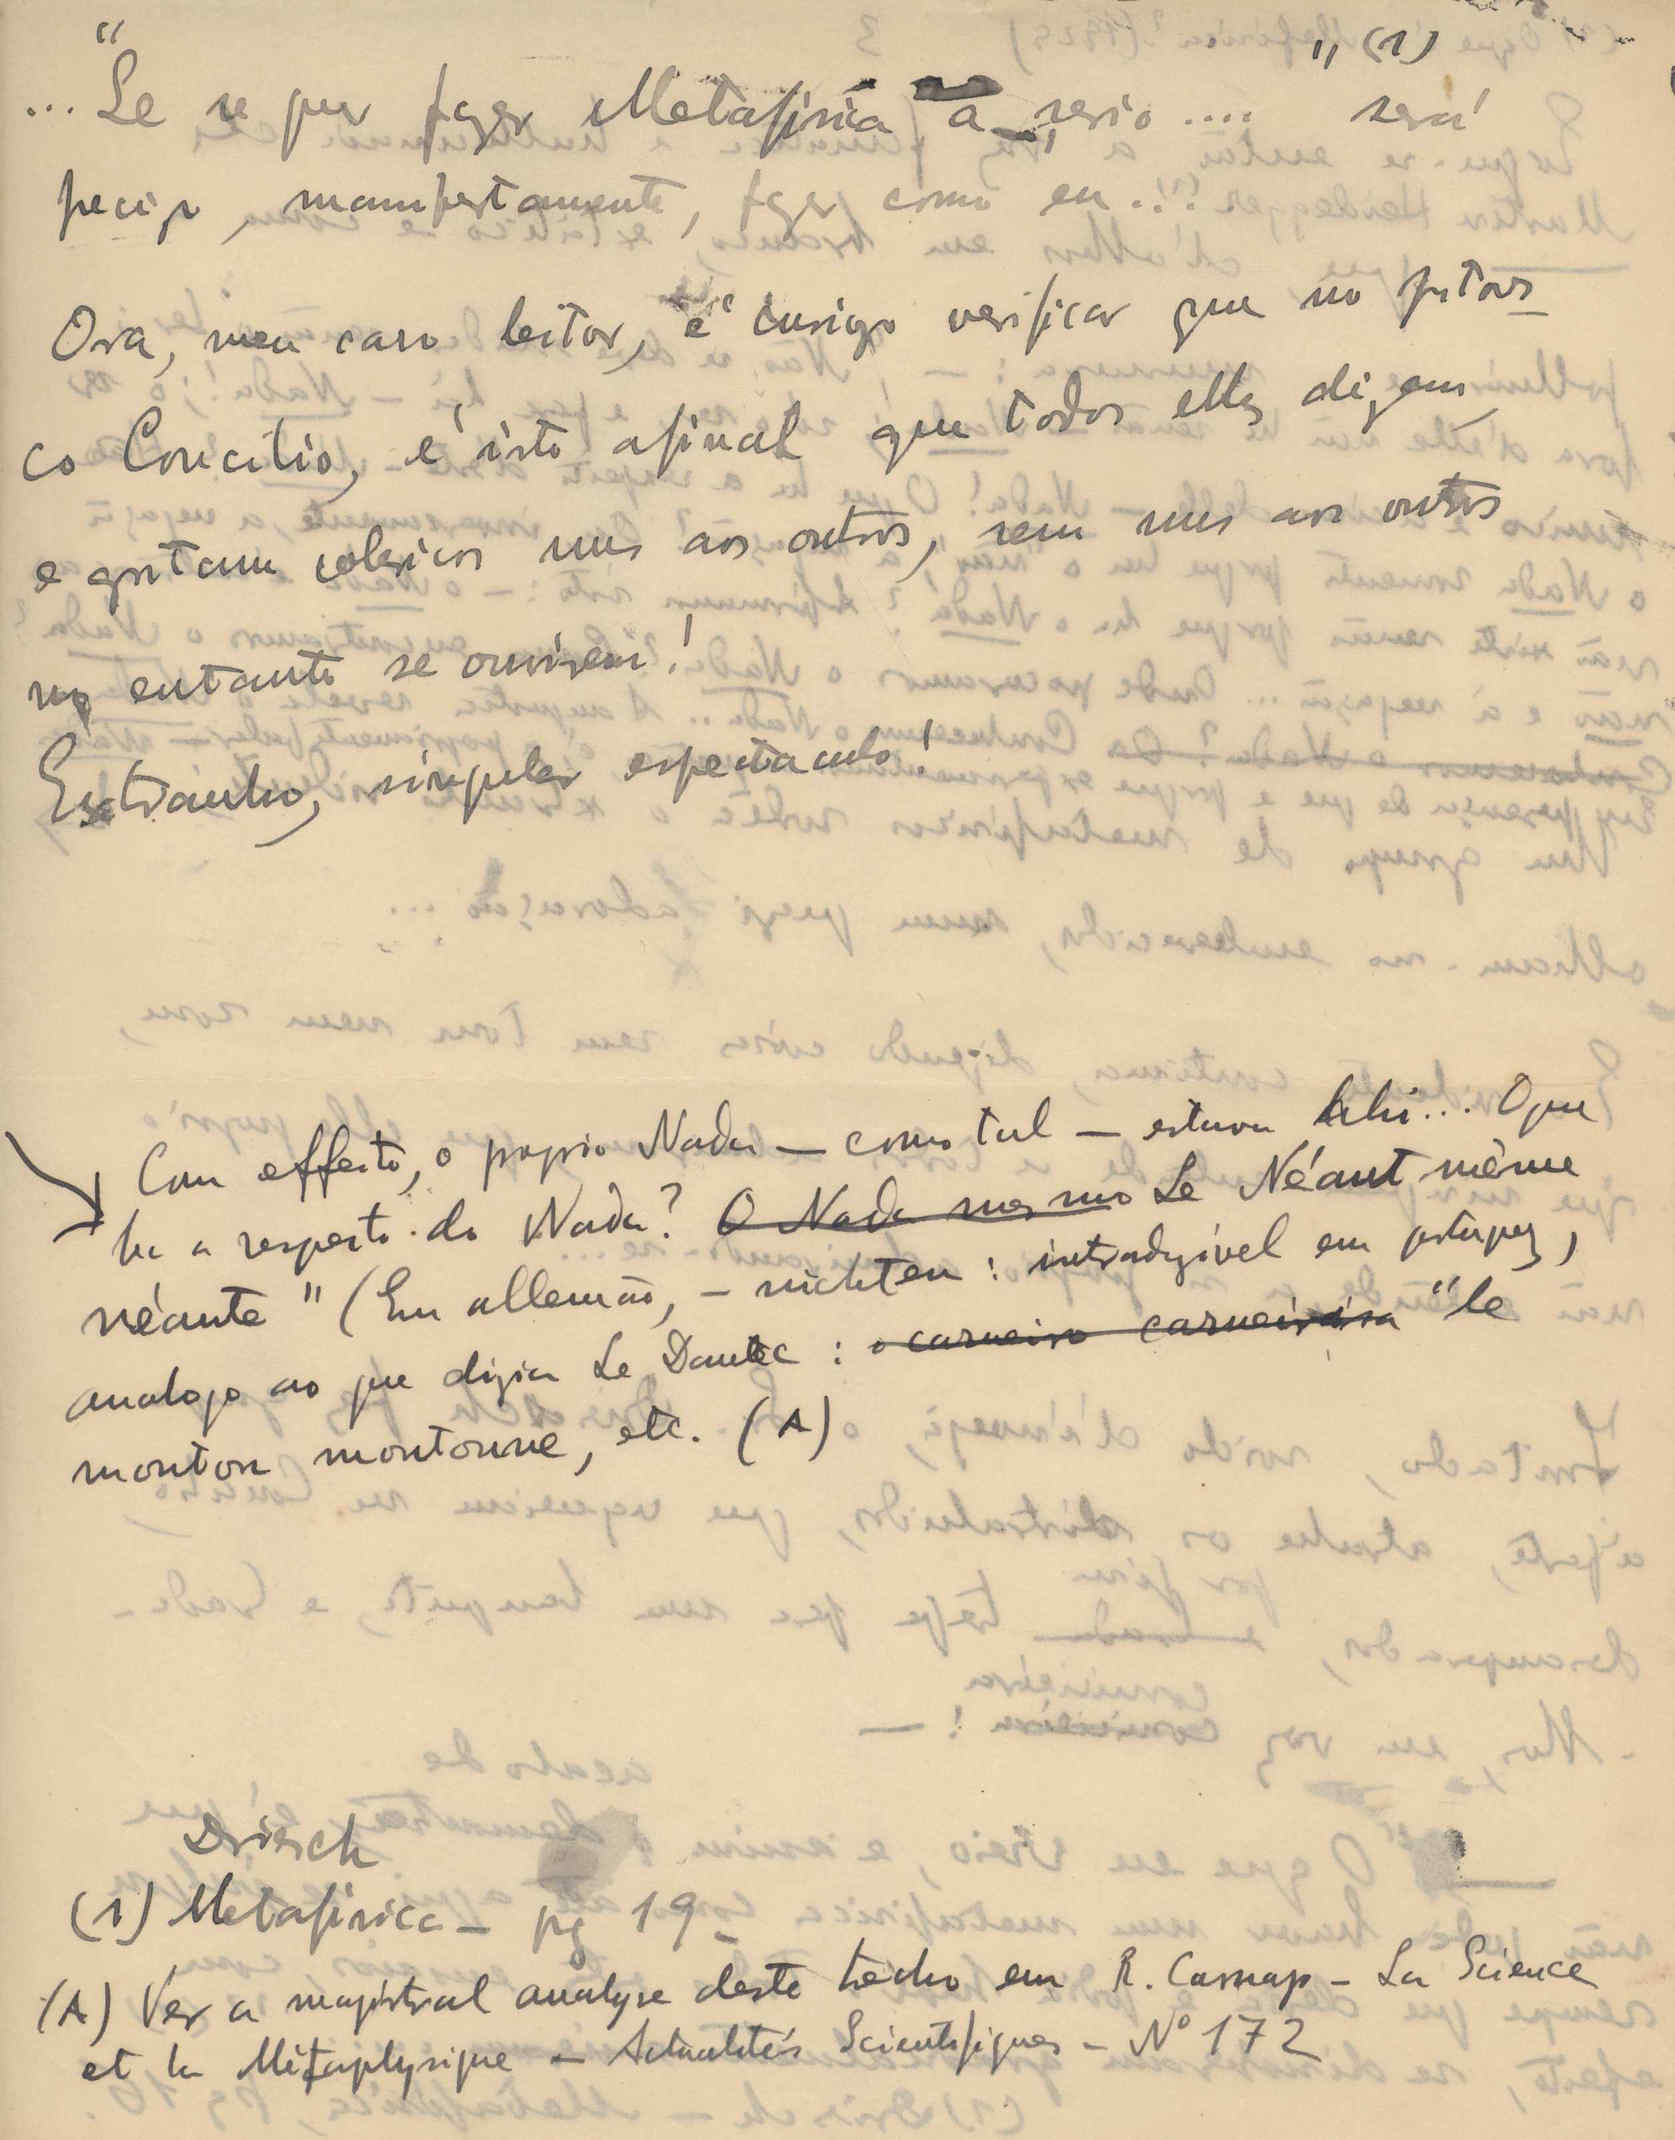 "
" (1)
... Se se quer fazer Metafisica a serio .... será
preciso, manifestamente, fazer como eu...
Ora, meu caro leitor, é curioso verificar que no pitores-
co Concilio, é isto afinal que todos elles dizem,
e gritam colericos uns aos outros, sem uns aos outros
no entanto se ouvirem!
Extranho, singular espectaculo!
Com effeito, o proprio Nada — como tal — estava lahi... O que
ha a respeito do Nada? O Nada mesmo Le Néant même
néante" (Em allemão, - nichten: intraduzivel em portuguez,
analogo ao que dizia Le Dantec: o carneiro carneirisa "le
mouton moutonne, etc. (A)
Driesch
(1) Metafisica — pg 19 -
(A) Ver a magistral analyse deste trecho em R. Carnap - La Science
et la Métaphysique - Actualités Scientifiques - Nº 172